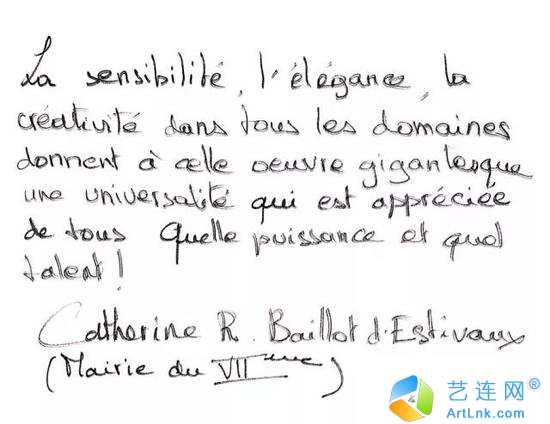 La sensibilité, l'élégance, la
créativité dans tous les domaines
donnent à cette oeuvre gigantesque
une universalité qui est appréciée
de tous Quelle puissance et quel
talent!
Catherine R. Baillot d'Estivaux
(Mairie du VIIème)
艺连网®
ArtLnk.com